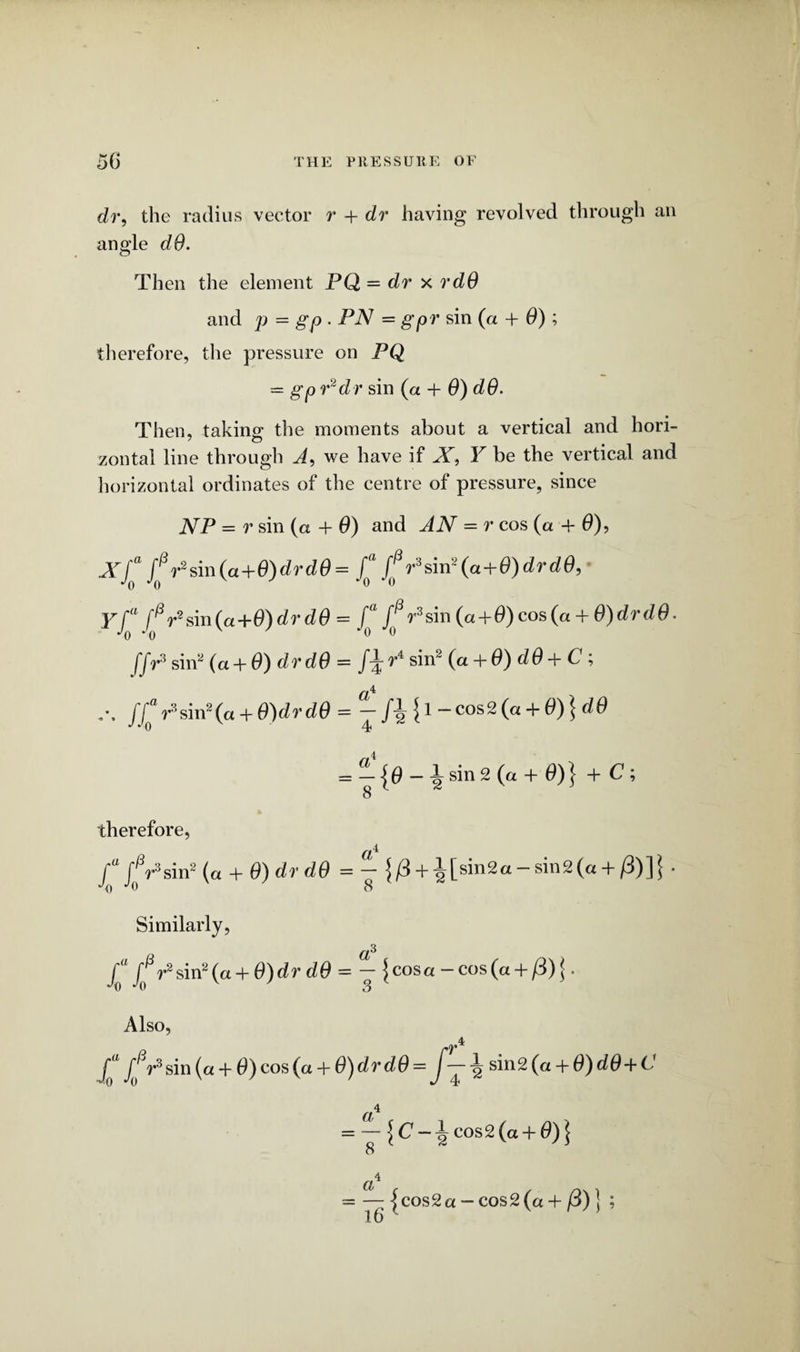 56 THE PRESSURE OF
dr, the radius vector r + dr having revolved through an
angle dθ.
Then the element PQ = dr × rdθ
and p = gρ . PN = gρr sin (α + θ) ;
therefore, the pressure on PQ
= gρ r²dr sin (α + θ) dθ.
Then, taking the moments about a vertical and hori-
zontal line through A, we have if X, Y be the vertical and
horizontal ordinates of the centre of pressure, since
NP = r sin (α + θ) and AN = r cos (α + θ),
X∫₀ᵃ ∫₀ᵝ r² sin (α+θ) dr dθ = ∫₀ᵃ ∫₀ᵝ r³ sin² (α+θ) dr dθ,
Y∫₀ᵃ ∫₀ᵝ r² sin (α+θ) dr dθ = ∫₀ᵃ ∫₀ᵝ r³ sin (α+θ) cos (α + θ) dr dθ.
∫∫r³ sin² (α + θ) dr dθ = ∫¼ r⁴ sin² (α + θ) dθ + C ;
∴ ∫∫₀ᵃ r³ sin² (α + θ) dr dθ = a⁴/4 ∫½ {1 – cos2 (α + θ)} dθ
= a⁴/8 {θ – ½ sin 2 (α + θ)} + C ;
therefore,
∫₀ᵃ ∫₀ᵝ r³ sin² (α + θ) dr dθ = a⁴/8 {β + ½[sin2α – sin2 (α + β)]} .
Similarly,
∫₀ᵃ ∫₀ᵝ r² sin² (α + θ) dr dθ = a³/3 {cosα – cos (α + β)} .
Also,
∫₀ᵃ ∫₀ᵝ r³ sin (α + θ) cos (α + θ) dr dθ = ∫r⁴/4 ½ sin2 (α + θ) dθ + C
= a⁴/8 {C – ½ cos2 (α + θ)}
= a⁴/16 {cos2α – cos2 (α + β)} ;